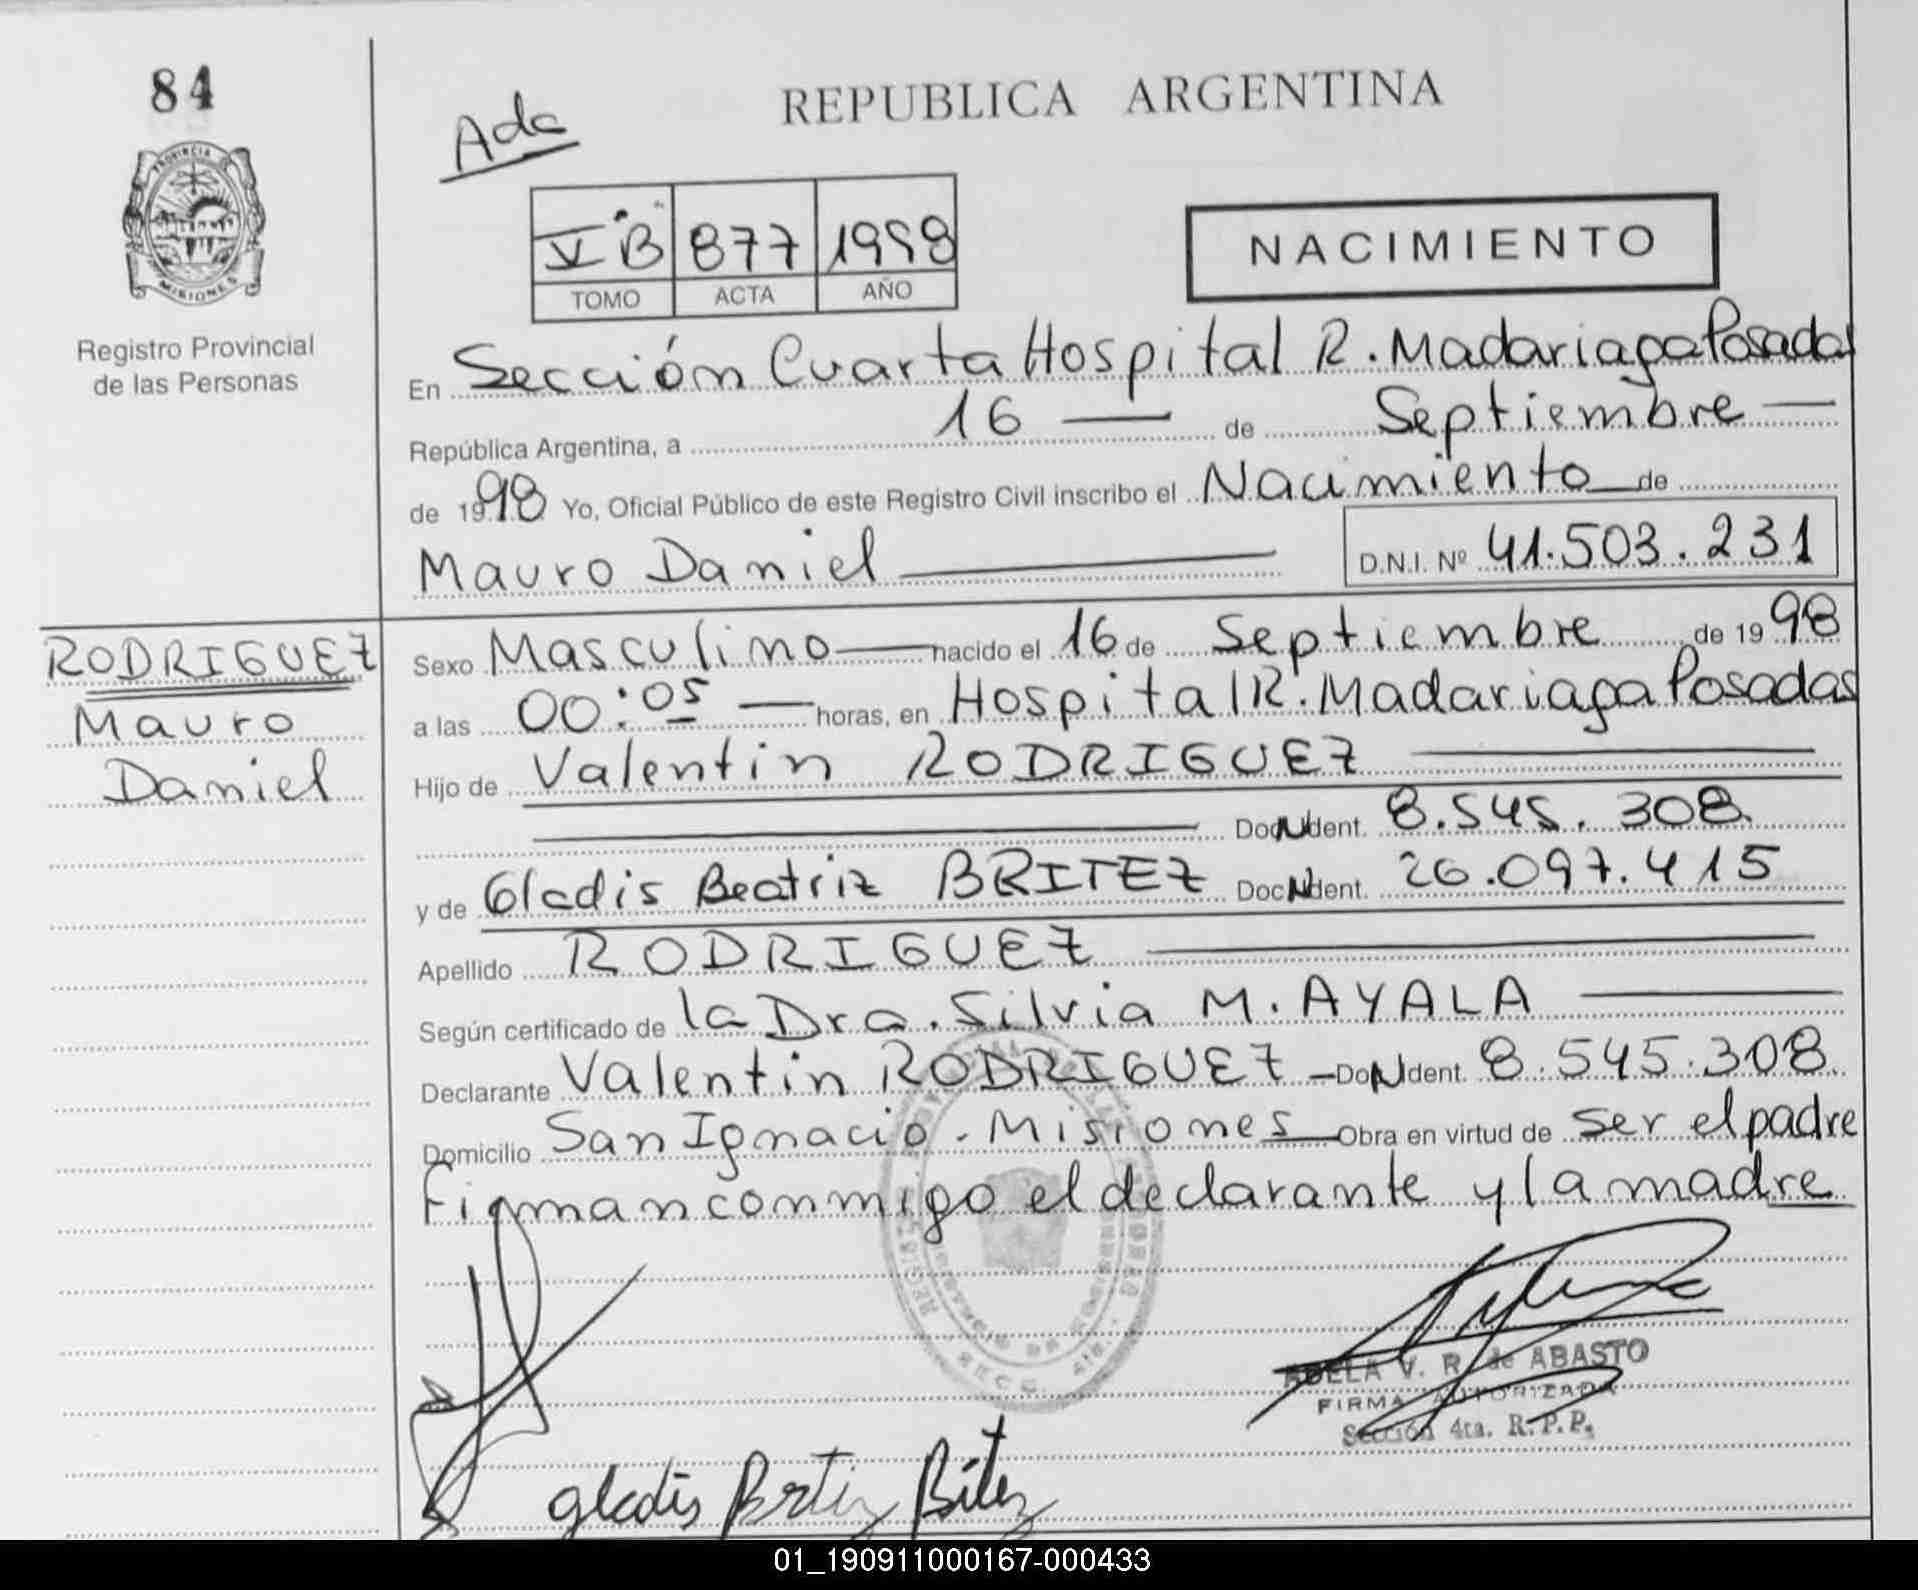 84
Ada
REPUBLICA ARGENTINA
PROVINCIA DE
MISIONES
V B 877 1998
TOMO ACTA AÑO
NACIMIENTO
Registro Provincial
de las Personas
En Sección Cuarta Hospital R. Madariaga Posadas
República Argentina, a 16 de Septiembre
de 1998 Yo, Oficial Público de este Registro Civil inscribo el Nacimiento de
Mauro Daniel D.N.I. Nº 41.503.231
RODRIGUEZ
Mauro
Daniel
Sexo Masculino nacido el 16 de Septiembre de 1998
a las 00:05 horas, en Hospital R. Madariaga Posadas
Hijo de Valentin RODRIGUEZ
Doc Ident. 8.545.308
y de Gladis Beatriz BRITEZ Doc Ident. 26.097.415
Apellido RODRIGUEZ
Según certificado de la Dra. Silvia M. AYALA
Declarante Valentin RODRIGUEZ Do Ident. 8.545.308
Domicilio San Ignacio - Misiones Obra en virtud de ser el padre
Firman conmigo el declarante y la madre
ADELA V. R. de ABASTO
FIRMA AUTORIZADA
Sección 4ta. R.P.P.
gladis Britez
01_190911000167-000433